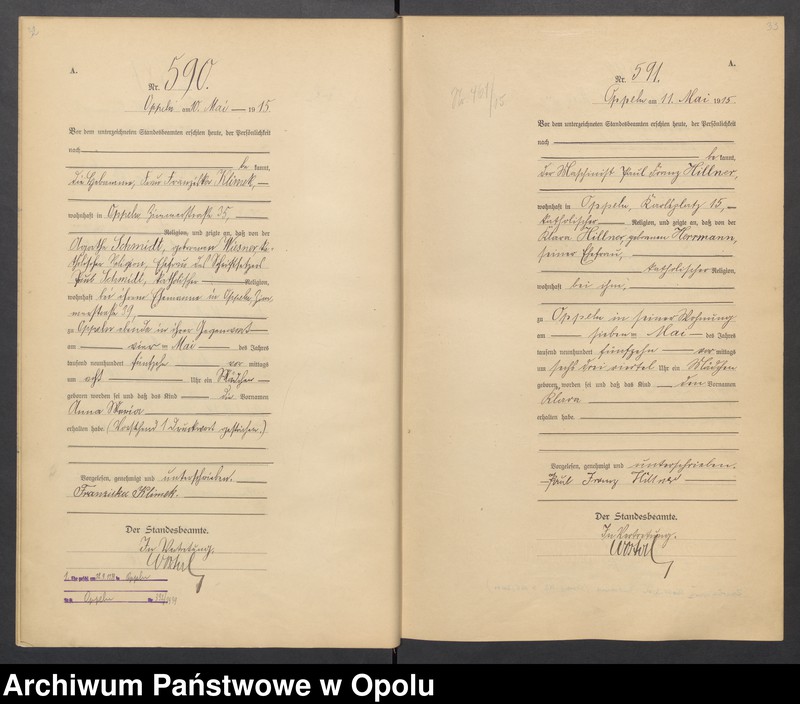 A.
Nr. 590.
Oppeln am 10. Mai 1915.
Vor dem unterzeichneten Standesbeamten erschien heute, der Persönlichkeit
nach
be kannt,
die Hebamme, Frau Franziska Klimek,
wohnhaft in Oppeln 35,
Religion, und zeigte an, daß von der
Agatha Schmidt, geborenen ka-
tholischer Religion, Ehefrau des Schriftsetzers
Paul Schmidt, katholischer Religion,
wohnhaft bei ihrem Ehemanne in Oppeln Zim-
merstraße
zu Oppeln in ihrer Gegenwart
am vier Mai des Jahres
tausend neunhundert fünfzehn vor mittags
um acht Uhr ein Mädchen
geboren worden sei und daß das Kind die Vornamen
Anna Maria
erhalten habe. (Vorstehend 1 Druckwort gestrichen.)
Vorgelesen, genehmigt und unterschrieben.
Franziska Klimek.
Der Standesbeamte.
In Vertretung.
Oppeln
Oppeln Nr.
A.
Nr. 591.
Oppeln am 11. Mai 1915
Vor dem unterzeichneten Standesbeamten erschien heute, der Persönlichkeit
nach
be kannt,
der Maschinist Paul Franz Hillner,
wohnhaft in Oppeln, Karlsplatz 15,
katholischer Religion, und zeigte an, daß von der
Klara Hillner, geborenen Herrmann,
seiner Ehefrau,
katholischer Religion,
wohnhaft bei ihm,
zu Oppeln in seiner Wohnung
am sieben Mai des Jahres
tausend neunhundert fünfzehn vor mittags
um sechs drei viertel Uhr ein Mädchen
geboren worden sei und daß das Kind den Vornamen
Klara
erhalten habe.
Vorgelesen, genehmigt und unterschrieben.
Paul Franz Hillner
Der Standesbeamte.
In Vertretung.
Archiwum Państwowe w Opolu